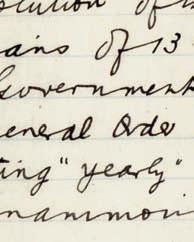 cution of
ains of 13
Government
eneral Orde
ting "yearly"
nanimou